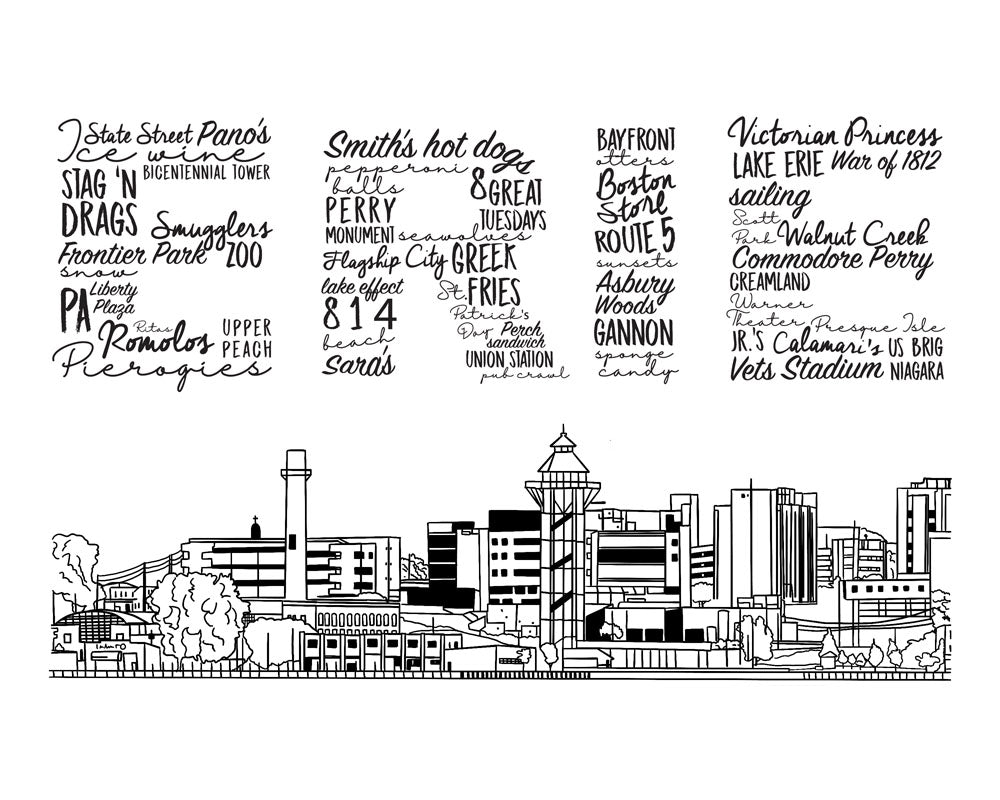 State Street Pano's
Ice wine
STAG 'N
DRAGS
BICENTENNIAL TOWER
Smugglers
Frontier Park ZOO
snow
PA
Liberty
Plaza
Ritas
Romolos
UPPER
PEACH
Pierogies
Smith's hot dogs
pepperoni
balls
8 GREAT
TUESDAYS
PERRY
MONUMENT seawolves
Flagship City GREEK
FRIES
lake effect
814
St.
Patrick's
Day
beach
Perch
sandwich
Sara's
UNION STATION
pub crawl
BAYFRONT
otters
Boston
Store
ROUTE 5
sunsets
Asbury
Woods
GANNON
sponge
candy
Victorian Princess
LAKE ERIE War of 1812
sailing
Scott
Park Walnut Creek
Commodore Perry
CREAMLAND
Warner
Theater Presque Isle
JR.'S Calamari's US BRIG
Vets Stadium NIAGARA